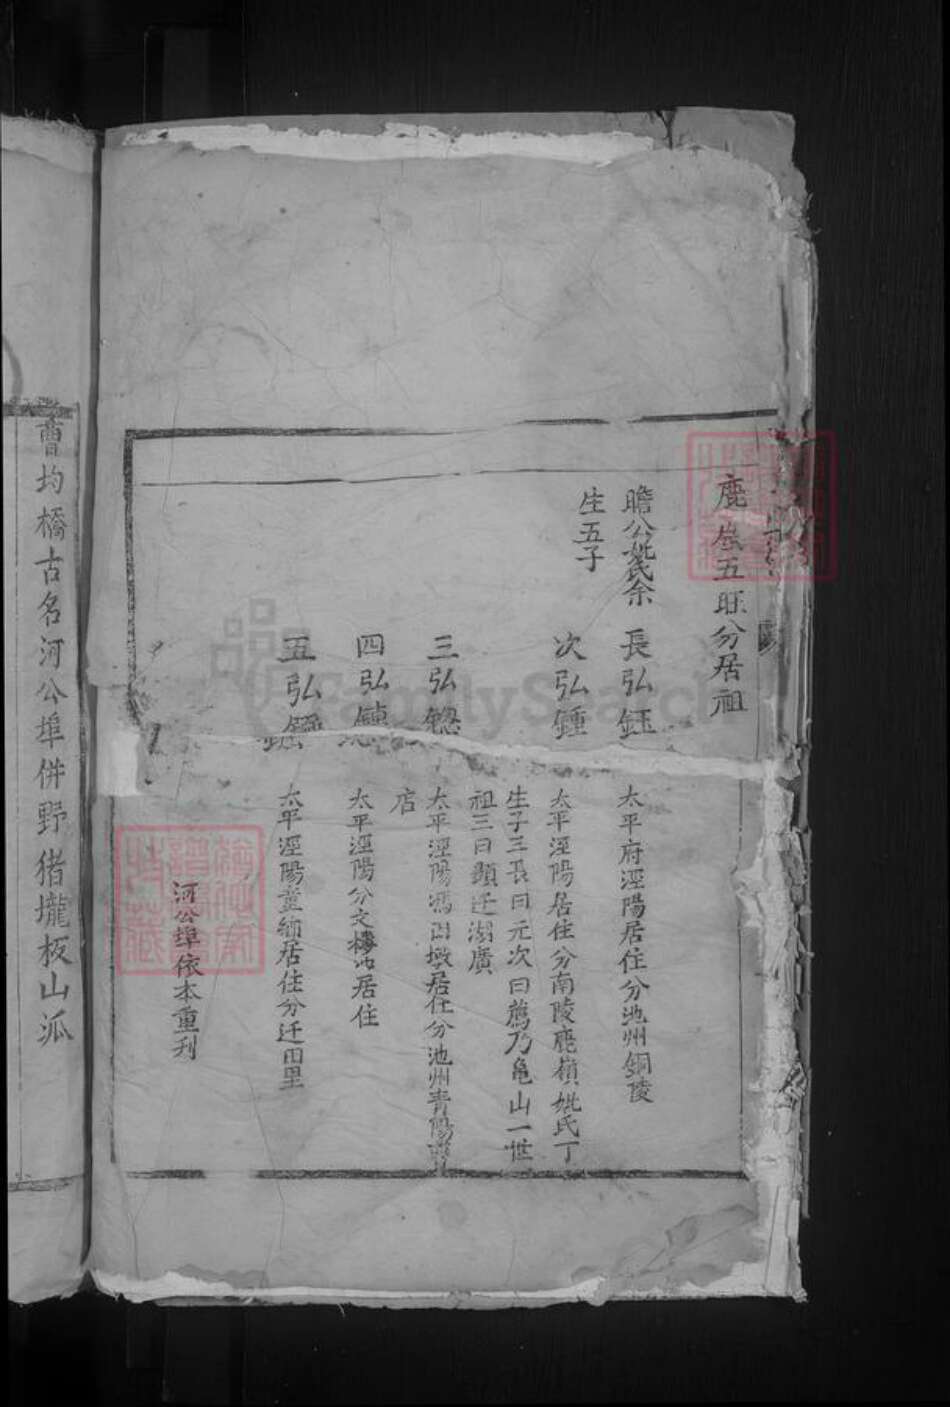 鹿嶺五旺分居祖
瞻公妣氏余
生五子
長弘鈺
太平府涇陽居住分池州銅陵
次弘鍾
太平涇陽居住分南陵鹿嶺妣氏丁
生子三長曰元次曰薦乃龜山一世
祖三曰顯迁湖廣
三弘鏓
太平涇陽馮田墩居住分池州青陽
店
四弘
太平涇陽分文 居住
五弘
太平涇陽 居住分迁田里
河公埠依本重刊
曹均橋古名河公埠併野猪壠板山泒
FamilySearch